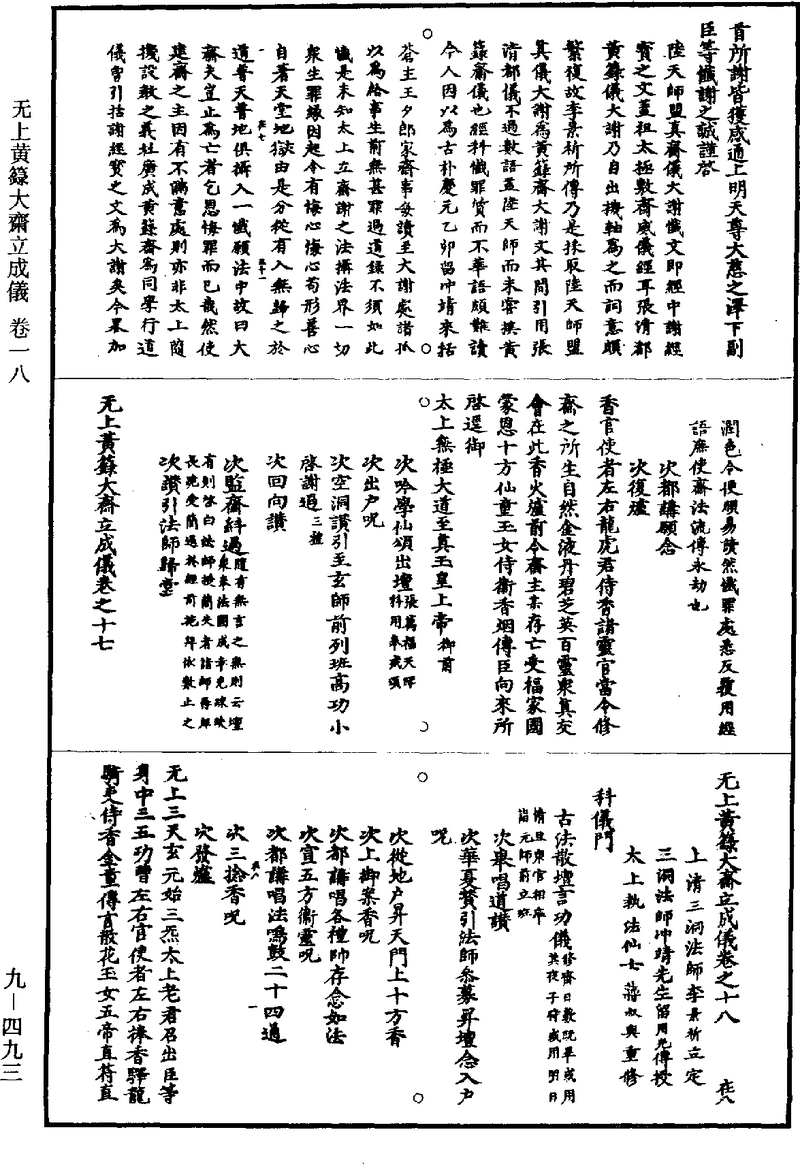 无上黄籙大齋立成儀 卷一八
九—四九三
首所謝皆獲感通上明天尊大慈之澤下副
臣等懺謝之誠謹啓
陸天師盟真齋儀大謝懺文即經中謝經
寶之文蓋祖太極敷齋威儀經耳張清都
黄籙儀大謝乃自出機軸為之而詞意頗
繁復故李景祈所傳乃是採取陸天師盟
真儀大謝為黄籙齋大謝文其間引用張
清都儀不過數語蓋陸天師而来嘗撰黄
籙齋儀也經科懺罪質而不華語頗難讀
今人因以為古朴慶元乙卯留冲靖來括
蒼主王夕郎家齋事每讀至大謝處諸孤
以為給事生前無甚罪過道録不須如此
懺是未知太上立齋謝之法攝法界一切
衆生罪緣因起今有悔心悔心苟形善心
自著天堂地獄由是分從有入無歸之於
道普天普地俱攝入一懺願法中故曰大
齋夫豈止為亡者乞恩悔罪而已哉然使
建齋之主因有不愜意處則亦非太上隨
機設教之義杜廣成黄籙齋為同學行道
儀嘗引括謝經寶之文為大謝矣今畧加
潤色令便順易讀然懺罪處悉反覆用經
語庶使齋法流傳永劫也
次都講願念
次復爐
香官使者左右龍虎君侍香諸靈官當令修
齋之所生自然金液丹碧芝英百靈衆真交
會在此香火爐前令齋主某存亡受福家國
蒙恩十方仙童玉女侍衛香烟傳臣向來所
啓逕御
太上無極大道至真玉皇上帝御前
次吟學仙頌出壇張萬福天師科用奉戒頌
次出户呪
次空洞讚引至玄師前列班高功小
啓謝過三禮
次回向讚
次監齋糾過隨有無言之無則云壇衆奉法圓成幸免疎映
有則啓白法師授簡失者詣師得解長跪受簡過於經前施拜依數止之
次讚引法師歸堂
无上黄籙大齋立成儀卷之十七
无上黄籙大齋立成儀卷之十八 在八
上清三洞法師李景祈立定
三洞法師冲靖先生留用光傳授
太上執法仙士蔣叔輿重修
科儀門
古法散壇言功儀修齋日數既畢或用其夜子時或用明日
清旦衆官相率詣元師前立班
次衆唱道讚
次華夏贊引法師叅纂昇壇念入户
呪
次從地户昇天門上十方香
次上御案香呪
次都講唱各禮師存念如法
次宣五方衛靈呪
次都講唱法鳴鼓二十四通
次三捻香呪
次發爐
无上三天玄元始三炁太上老君召出臣等
身中三五功曹左右官使者左右捧香驛龍
騎吏侍香金童傳言散花玉女五帝直符直